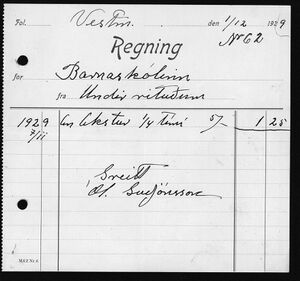 Fol. Vestm. den 1/12 1929
No 62
Regning
for Barnaskólinn
fra Undirrituðum
1929 7/11 akstur 1/4 Tími 5/- 1 25
Greitt
Ól. Guðjónsson
M&T Nr. 4.